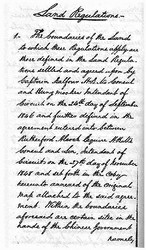 Land Regulations.
1. The boundaries of the Land
to which these Regulations apply are
those defined in the Land Regula-
tions settled and agreed upon by
Captain Balfour Her B. M. Consul
and Kung Moo-yuen Intendant of
Circuit on the 24th day of September
1846 and further defined in the
agreement entered into between
Rutherford Alcock Esquire Her B. M.
Consul and Lin, Intendant of
Circuit on the 27th day of November
1848 set forth in the copy
hereunto annexed of the original
Plan attached to the said agree-
ment. Within the boundaries
aforesaid are certain sites in the
hands of the Chinese Government
namely,